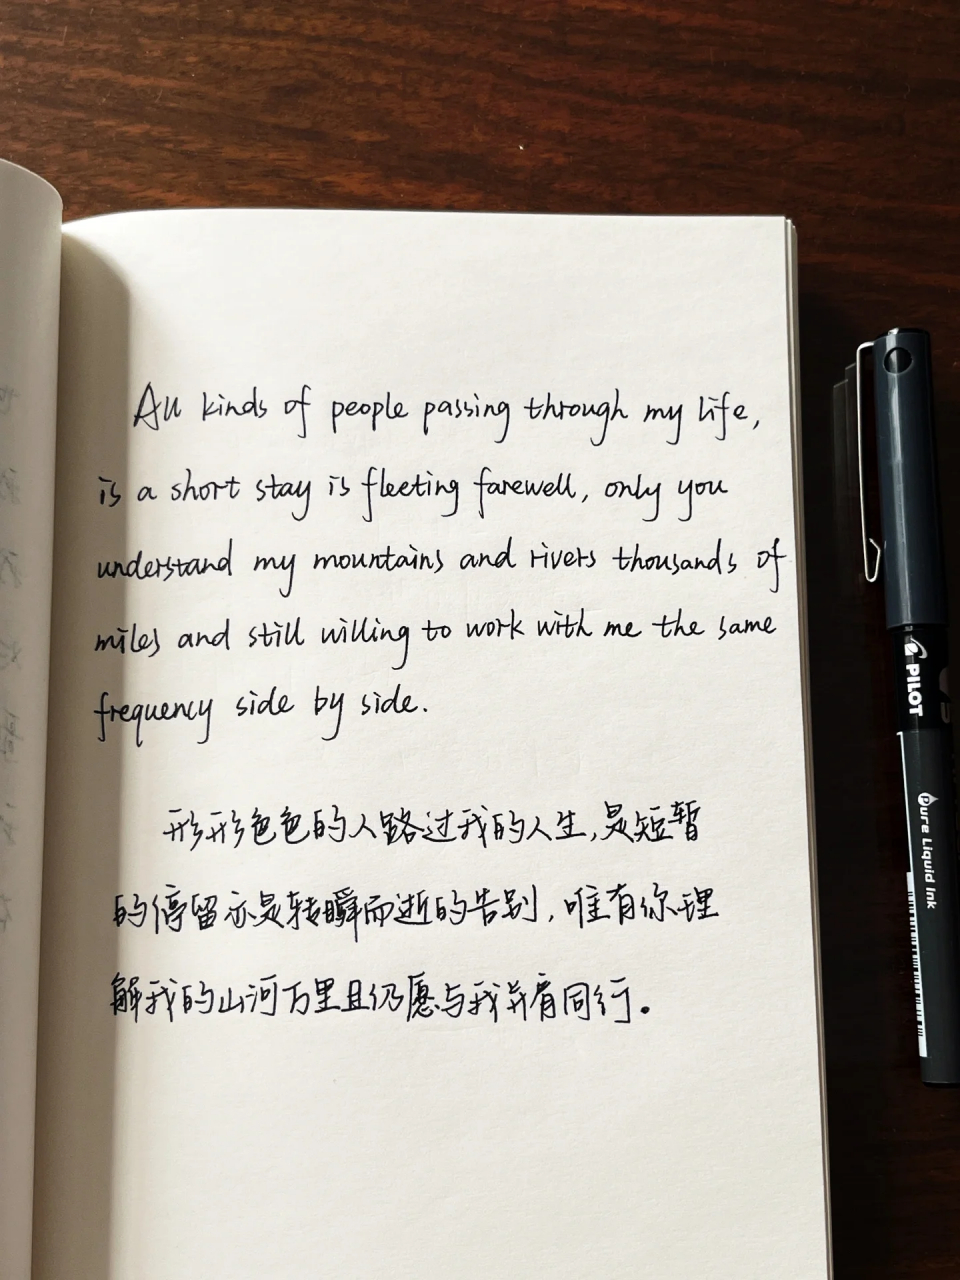 All kinds of people passing through my life,
is a short stay is fleeting farewell, only you
understand my mountains and rivers thousands of
miles and still willing to work with me the same
frequency side by side.
形形色色的人路过我的人生,是短暂
的停留亦是转瞬而逝的告别,唯有你理
解我的山河万里且仍愿与我并肩同行。
PILOT
Pure Liquid Ink